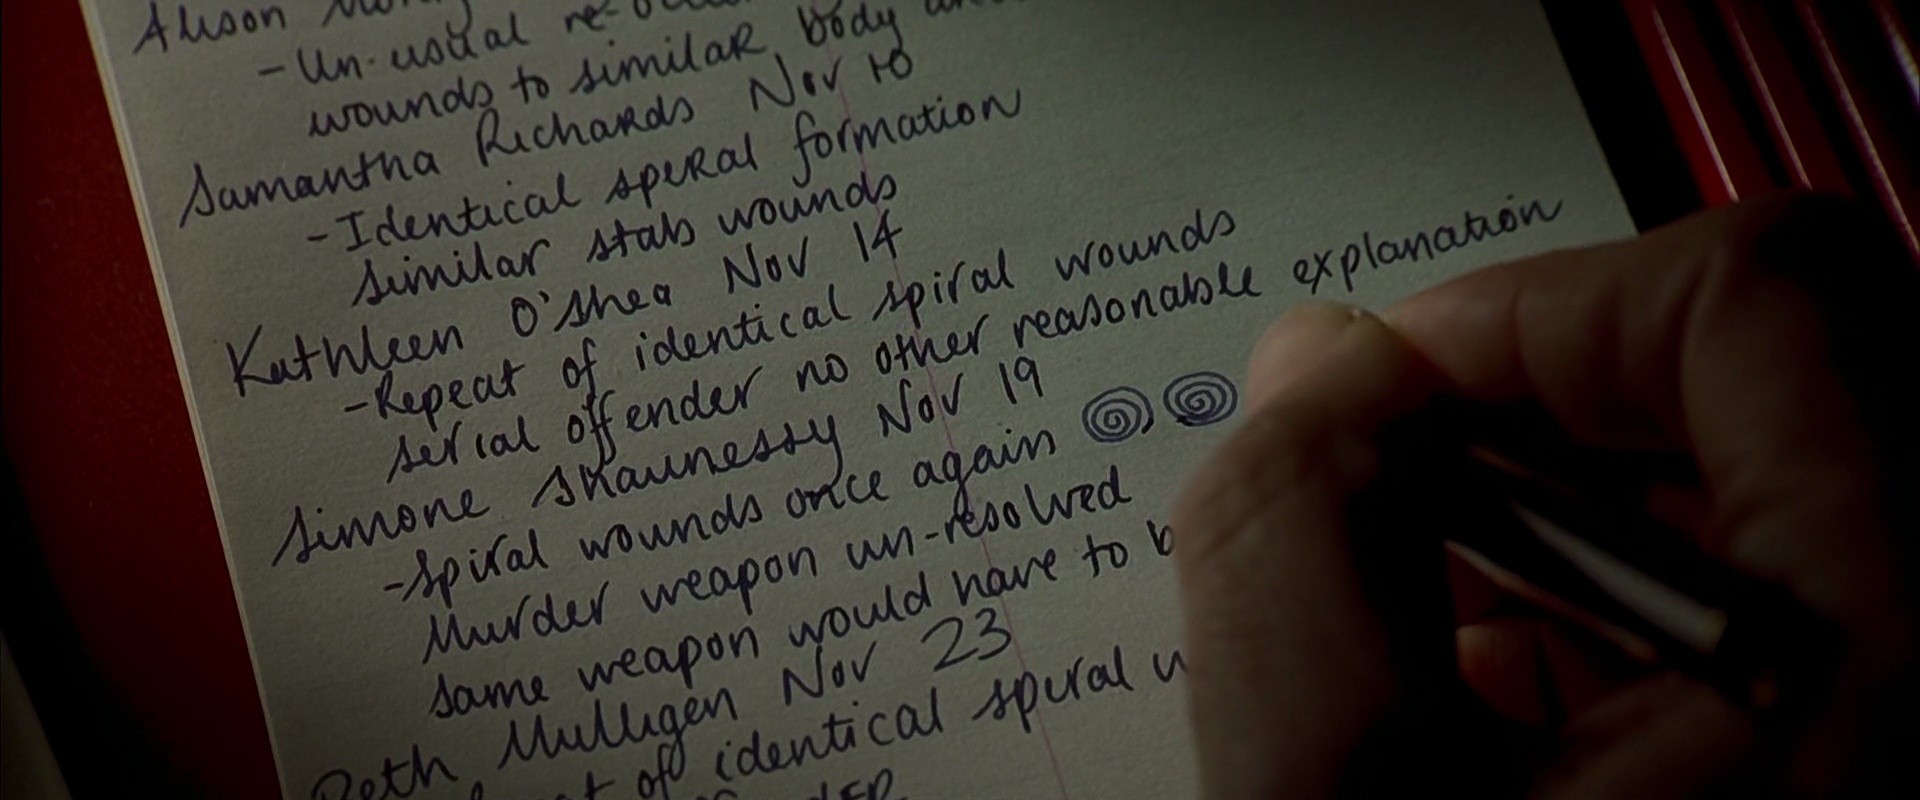 Alison
- Un-usual re-
wounds to similar body
Samantha Richards Nov 10
- Identical speral formation
similar stab wounds
Kathleen O'Shea Nov 14
- Repeat of identical spiral wounds
serial offender no other reasonable explanation
Simone Shaunessy Nov 19
- Spiral wounds once again
Murder weapon un-resolved
same weapon would have to b
Beth Mulligen Nov 23
of identical speral w